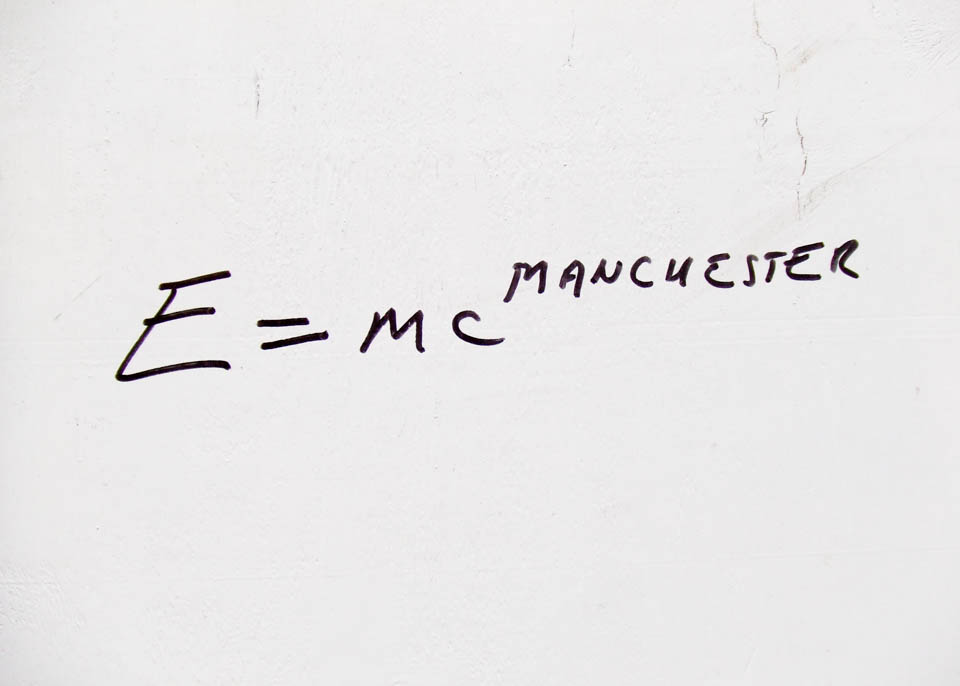 E = mc^MANCHESTER